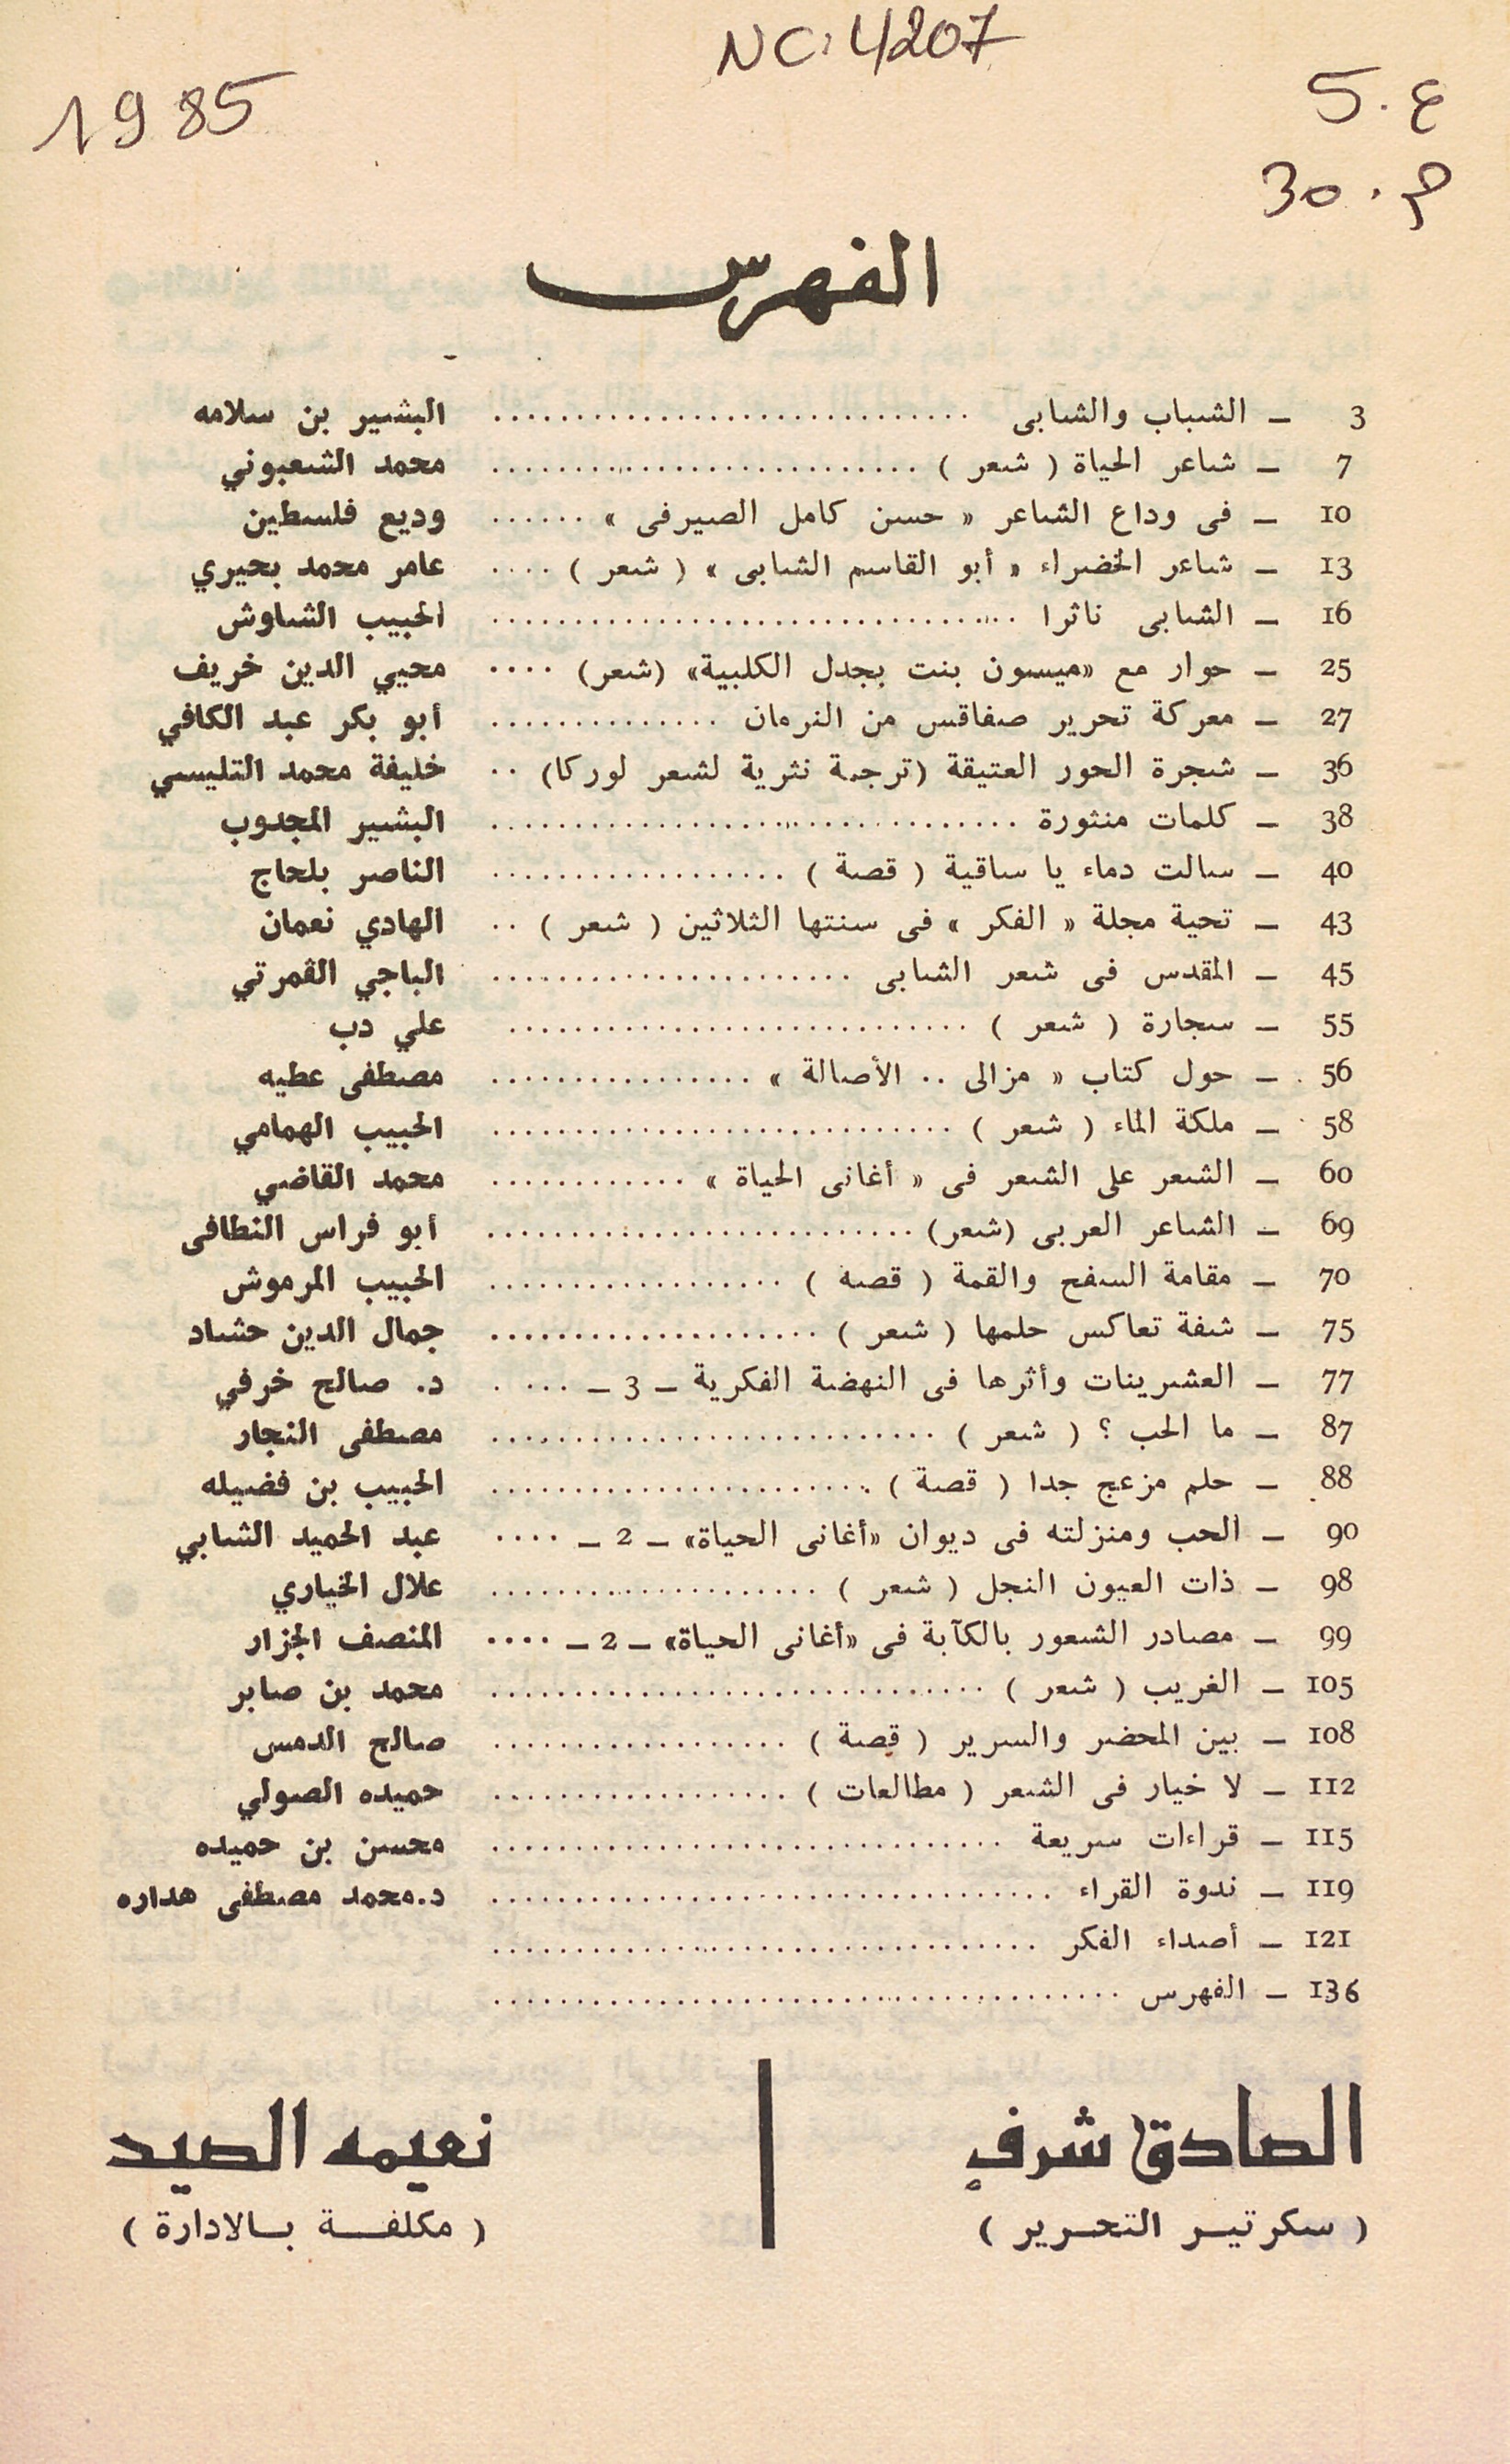 NC: 4207
1985
ع. 5
م. 30
الفهرس
3 – الشباب والشابى .............................. البشير بن سلامه
7 – شاعر الحياة ( شعر ) .............................. محمد الشعبوني
10 – فى وداع الشاعر « حسن كامل الصيرفى » ...... وديع فلسطين
13 – شاعر الخضراء « أبو القاسم الشابى » ( شعر ) .... عامر محمد بحيري
16 – الشابى ناثرا .............................. الحبيب الشاوش
25 – حوار مع «ميسون بنت بجدل الكلبية» (شعر) .... محيي الدين خريف
27 – معركة تحرير صفاقس من النرمان .............. أبو بكر عبد الكافي
36 – شجرة الحور العتيقة (ترجمة نثرية لشعر لوركا) .. خليفة محمد التليسي
38 – كلمات منثورة .............................. البشير المجدوب
40 – سالت دماء يا ساقية ( قصة ) .................. الناصر بلحاج
43 – تحية مجلة « الفكر » فى سنتها الثلاثين ( شعر ) .. الهادي نعمان
45 – المقدس فى شعر الشابى ...................... الباجي القمرتي
55 – سجارة ( شعر ) ............................ علي دب
56 – حول كتاب « مزالى .. الأصالة » ................ مصطفى عطيه
58 – ملكة الماء ( شعر ) ............................ الحبيب الهمامي
60 – الشعر على الشعر فى « أغانى الحياة » ............ محمد القاضي
69 – الشاعر العربى (شعر) .......................... أبو فراس النطافى
70 – مقامة السفح والقمة ( قصة ) .................. الحبيب المرموش
75 – شفة تعاكس حلمها ( شعر ) .................... جمال الدين حشاد
77 – العشرينات وأثرها فى النهضة الفكرية – 3 – .... د. صالح خرفي
87 – ما الحب ؟ ( شعر ) ............................ مصطفى النجار
88 – حلم مزعج جدا ( قصة ) ........................ الحبيب بن فضيله
90 – الحب ومنزلته فى ديوان «أغانى الحياة» – 2 – .... عبد الحميد الشابي
98 – ذات العيون النجل ( شعر ) .................... علال الخياري
99 – مصادر الشعور بالكآبة فى «أغانى الحياة» – 2 – .... المنصف الجزار
105 – الغريب ( شعر ) .............................. محمد بن صابر
108 – بين المحضر والسرير ( قصة ) .................. صالح الدمس
112 – لا خيار فى الشعر ( مطالعات ) .................. حميده الصولي
115 – قراءات سريعة .............................. محسن بن حميده
119 – ندوة القراء .................................. د.محمد مصطفى هداره
121 – أصداء الفكر ..................................
136 – الفهرس ......................................
الصادق شرف
( سكرتير التحرير )
نعيمه الصيد
( مكلفة بالادارة )